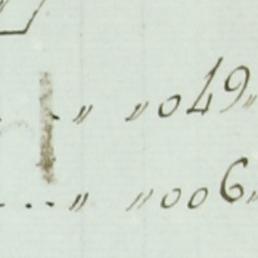 . . „ „ 049 „
. . . „ „ 006 „